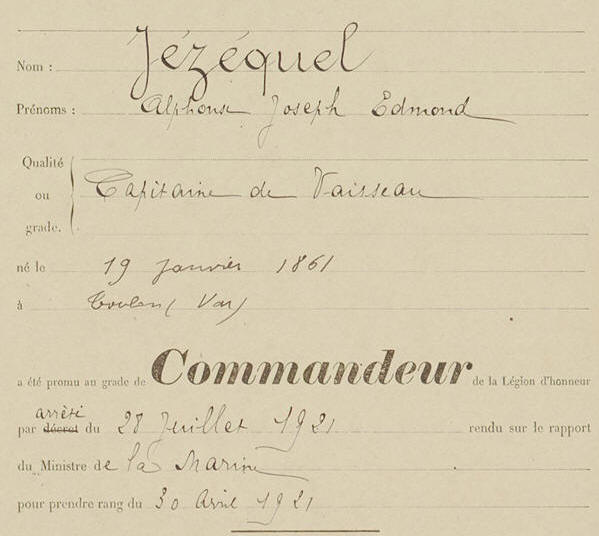 Nom : Jézéquel
Prénoms : Alphonse Joseph Edmond
Qualité
ou Capitaine de Vaisseau
grade.
né le 19 janvier 1861
à Toulon (Var)
a été promu au grade de Commandeur de la Légion d'honneur
arrêté
par décret du 28 Juillet 1921 rendu sur le rapport
du Ministre de la Marine
pour prendre rang du 30 Avril 1921